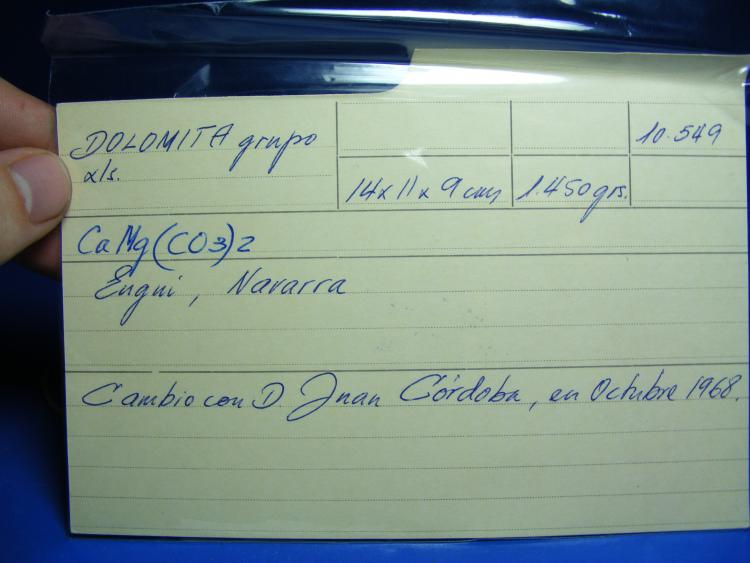 DOLOMITA grupo
xls.
10.549
14x11x9 cm
1.450 grs.
CaMg(CO3)2
Eugui, Navarra
Cambio con D. Juan Córdoba, en Octubre 1968.